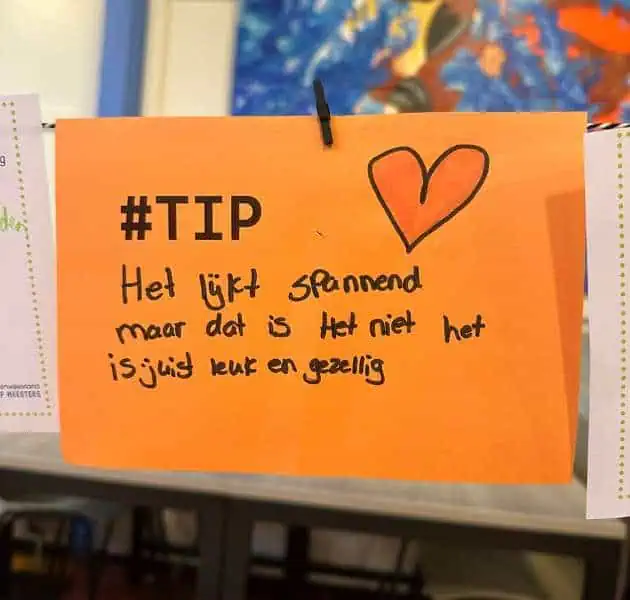 #TIP
Het lijkt spannend
maar dat is Het niet het
is juist leuk en gezellig
den
MEESTERS